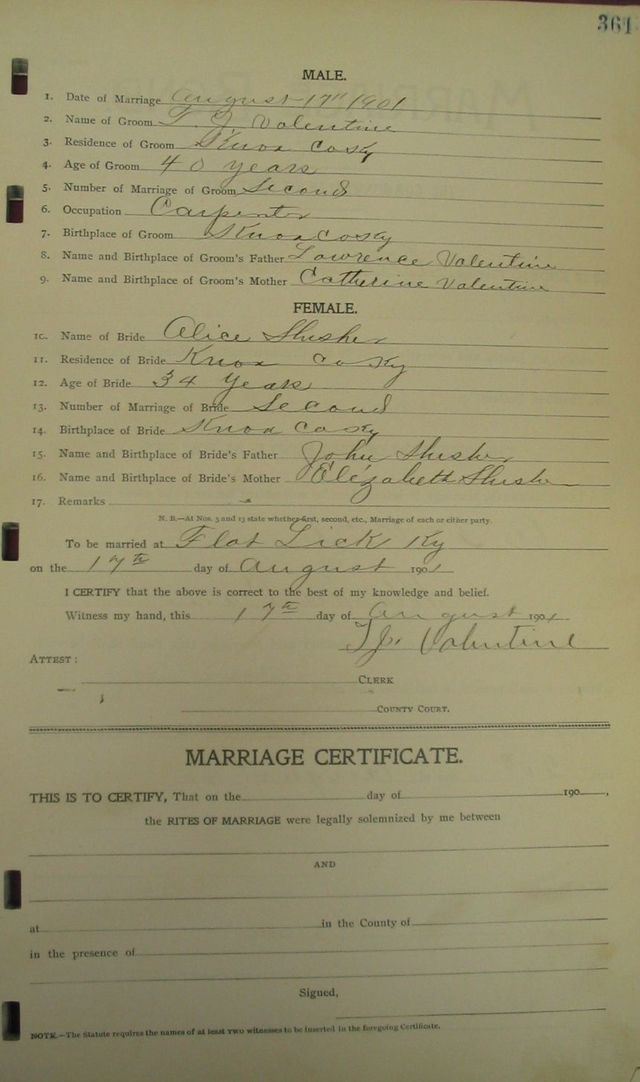 361
MALE.
1. Date of Marriage August 17th 1901
2. Name of Groom T J Valentine
3. Residence of Groom Knox Co Ky
4. Age of Groom 40 years
5. Number of Marriage of Groom Second
6. Occupation Carpenter
7. Birthplace of Groom Knox Co Ky
8. Name and Birthplace of Groom's Father Lawrence Valentine
9. Name and Birthplace of Groom's Mother Catherine Valentine
FEMALE.
10. Name of Bride Alice
11. Residence of Bride Knox Co Ky
12. Age of Bride 34 years
13. Number of Marriage of Bride Second
14. Birthplace of Bride Knox Co Ky
15. Name and Birthplace of Bride's Father John
16. Name and Birthplace of Bride's Mother Elizabeth
17. Remarks
N. B.—At Nos. 5 and 13 state whether first, second, etc., Marriage of each or either party.
To be married at Flat Lick Ky
on the 17th day of August 1901
I CERTIFY that the above is correct to the best of my knowledge and belief.
Witness my hand, this 17th day of August 1901
T J. Valentine
ATTEST:
CLERK
COUNTY COURT.
MARRIAGE CERTIFICATE.
THIS IS TO CERTIFY, That on the day of 190 ,
the RITES OF MARRIAGE were legally solemnized by me between
AND
at in the County of
in the presence of
Signed,
NOTE.—The Statute requires the names of at least two witnesses to be inserted in the foregoing Certificate.